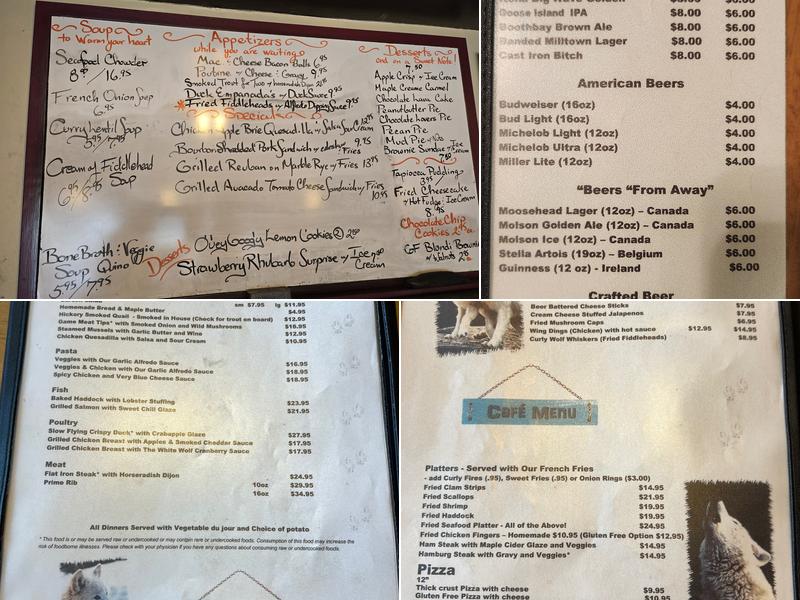 Soup
to Warm your heart
Seafood Chowder
8.95/16.95
French Onion Soup
6.95
Curry Lentil Soup
5.95/7.95
Cream of Fiddlehead
Soup
6.95/8.95
Bone Broth: Veggie
Soup Quino
5.95/7.95
Appetizers
while you are waiting
Mac & Cheese Bacon Balls 6.95
Poutine w Cheese & Gravy 9.95
Smoked Trout for Two w horseradish Dijon
Duck Empanada's w Duck Sauce 9.95
Fried Fiddleheads w Alfredo Dipping Sauce 9.95
Specials
Chicken Apple Brie Quesadilla w Salsa Sour Cream
Bourbon Shredded Pork Sandwich w coleslaw Fries
Grilled Reuban on Marble Rye w Fries 13.95
Grilled Avacado Tomato Cheese Sandwich w/ Fries
10.95
Desserts
O'uey Gooey Lemon Cookies 2.50
Strawberry Rhubarb Surprise w Ice Cream
Desserts
end on a Sweet Note!
7.50
Apple Crisp w Ice Cream
Maple Creme Carmel
Chocolate Lava Cake
Peanutbutter Pie
Chocolate Lovers Pie
Pecan Pie
Mud Pie
Brownie Sundae w Ice Cream
7.50
Tapioca Pudding
3.95
Fried Cheesecake
w Hot Fudge & Ice Cream
8.95
Chocolate Chip
Cookies
GF Blondi Brownie
w Walnuts
Goose Island IPA $8.00 $6.00
Boothbay Brown Ale $8.00 $6.00
Banded Milltown Lager $8.00 $6.00
Cast Iron Bitch $8.00 $6.00
American Beers
Budweiser (16oz) $4.00
Bud Light (16oz) $4.00
Michelob Light (12oz) $4.00
Michelob Ultra (12oz) $4.00
Miller Lite (12oz) $4.00
"Beers "From Away"
Moosehead Lager (12oz) – Canada $6.00
Molson Golden Ale (12oz) – Canada $6.00
Molson Ice (12oz) – Canada $6.00
Stella Artois (19oz) – Belgium $6.00
Guinness (12 oz) - Ireland $6.00
Crafted Beer
sm $7.95 lg $11.95
Homemade Bread & Maple Butter $4.95
Hickory Smoked Quail - Smoked in House (Check for trout on board) $12.95
Game Meat Tips* with Smoked Onion and Wild Mushrooms $16.95
Steamed Mussels with Garlic Butter and Wine $12.95
Chicken Quesadilla with Salsa and Sour Cream $10.95
Pasta
Veggies with Our Garlic Alfredo Sauce $16.95
Veggies & Chicken with Our Garlic Alfredo Sauce $18.95
Spicy Chicken and Very Blue Cheese Sauce $18.95
Fish
Baked Haddock with Lobster Stuffing $23.95
Grilled Salmon with Sweet Chili Glaze $21.95
Poultry
Slow Flying Crispy Duck* with Crabapple Glaze $27.95
Grilled Chicken Breast with Apples & Smoked Cheddar Sauce $17.95
Grilled Chicken Breast with The White Wolf Cranberry Sauce $17.95
Meat
Flat Iron Steak* with Horseradish Dijon $24.95
Prime Rib 10oz $29.95
16oz $34.95
All Dinners Served with Vegetable du jour and Choice of potato
* This food is or may be served raw or undercooked or may contain rare or undercooked foods. Consumption of this food may increase the
risk of foodborne illnesses. Please check with your physician if you have any questions about consuming raw or undercooked foods.
Beer Battered Cheese Sticks $7.95
Cream Cheese Stuffed Jalapenos $7.95
Fried Mushroom Caps $6.95
Wing Dings (Chicken) with hot sauce $12.95 $14.95
Curly Wolf Whiskers (Fried Fiddleheads) $8.95
CaFé MeNU
Platters - Served with Our French Fries
- add Curly Fires (.95), Sweet Fries (.95) or Onion Rings ($3.00)
Fried Clam Strips $14.95
Fried Scallops $21.95
Fried Shrimp $19.95
Fried Haddock $19.95
Fried Seafood Platter - All of the Above! $24.95
Fried Chicken Fingers – Homemade $10.95 (Gluten Free Option $12.95)
Ham Steak with Maple Cider Glaze and Veggies $14.95
Hamburg Steak with Gravy and Veggies* $14.95
Pizza
12"
Thick crust Pizza with cheese $9.95
Gluten Free Pizza with cheese $10.95